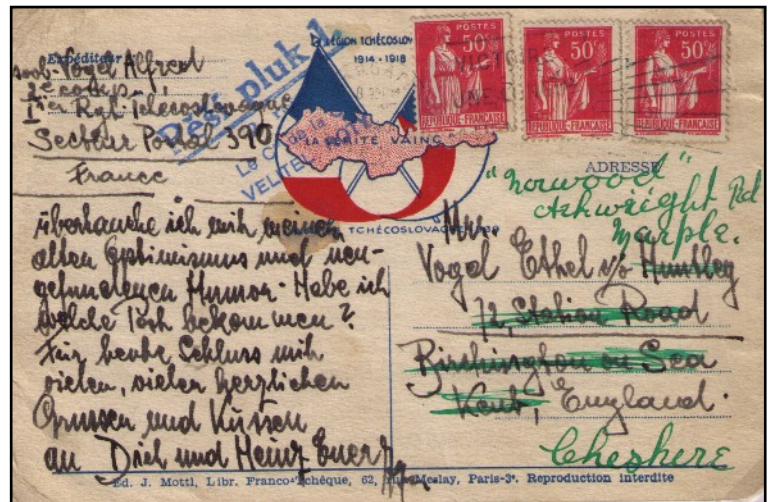 Expéditeur
Vogel Alfred
2e comp.
1er Rgt. Tchécoslovaque
Secteur Postal 390
France
LÉGION TCHÉCOSLOV
1914 - 1918
Pěší pluk 1.
LA VÉRITÉ VAINC
VELITEL ROTY
TCHÉCOSLOVAQUE 1939
POSTES
50c
RÉPUBLIQUE FRANÇAISE
POSTES
50c
RÉPUBLIQUE FRANÇAISE
POSTES
50c
RÉPUBLIQUE FRANÇAISE
ADRESSE
"Norwood"
Arkwright Rd
Marple.
Mrs.
Vogel Ethel c/o Huntley
72, Station Road
Birchington on Sea
Kent, England.
Cheshire
ich mich meinen
alten Optimismus und neu-
gefundenen Humor - Habe ich
welche Post bekommen?
Für heute Schluss mit
vielen, vielen herzlichen
Grüssen und Küssen
an Dich und Heinz Euer
Ed. J. Mottl, Libr. Franco-Tchèque, 62, rue Meslay, Paris-3e. Reproduction interdite